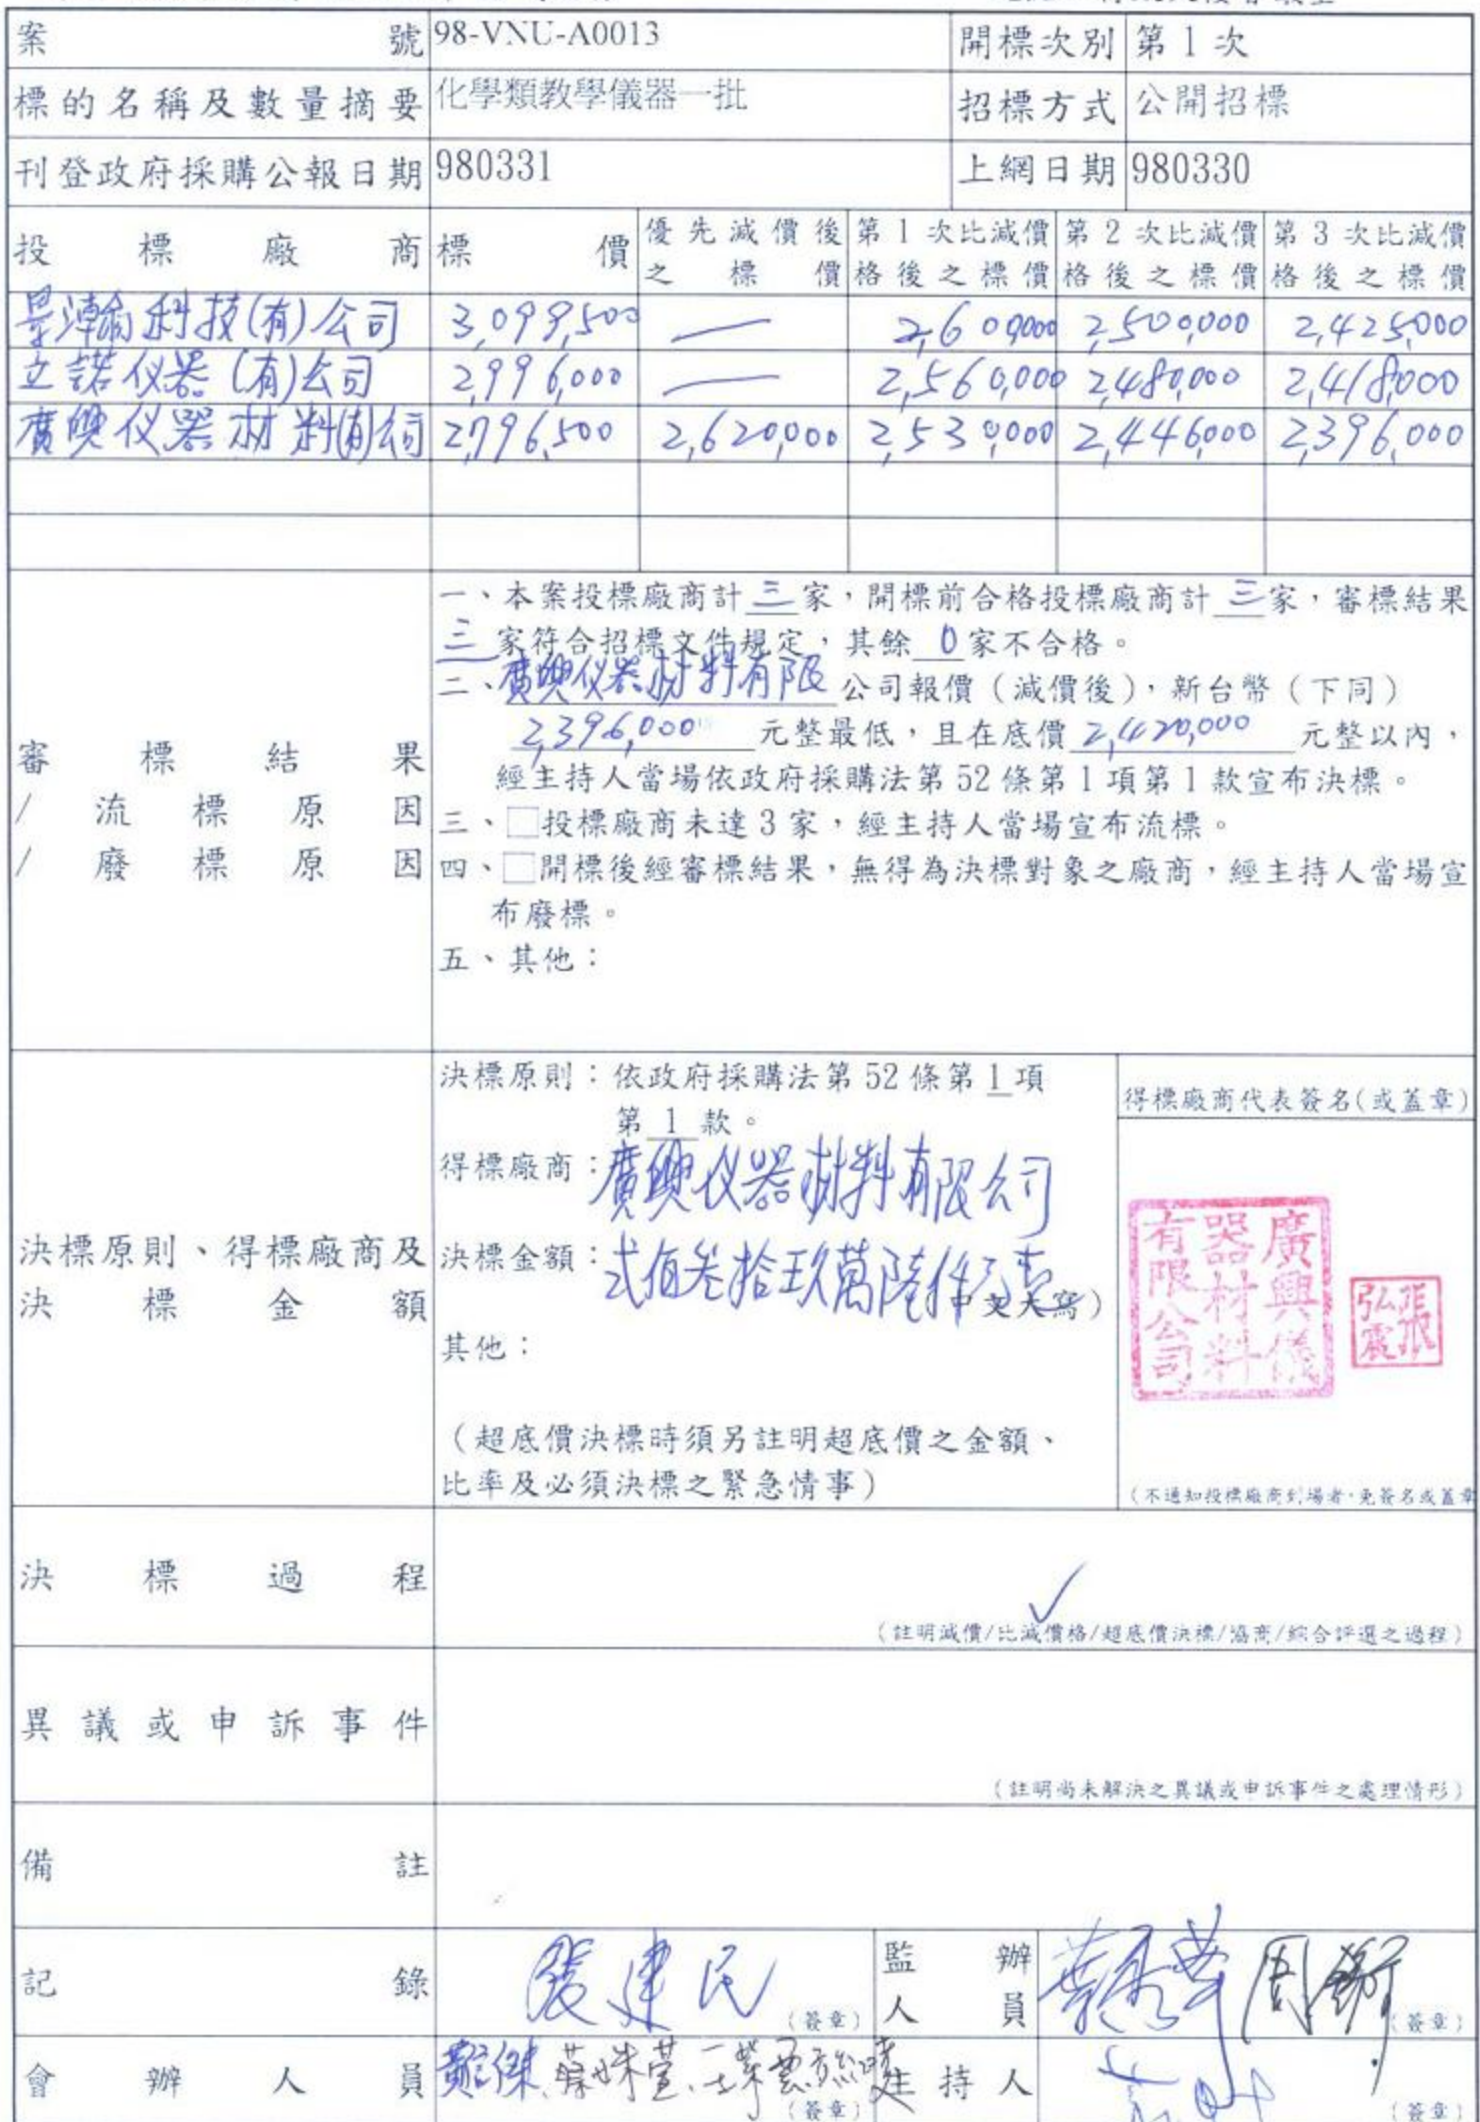 案號 98-VNU-A0013 開標次別 第1次
標的名稱及數量摘要 化學類教學儀器一批 招標方式 公開招標
刊登政府採購公報日期 980331 上網日期 980330
投標廠商 標價 優先減價後之標價 第1次比減價格後之標價 第2次比減價格後之標價 第3次比減價格後之標價
瀚科技(有)公司 3,099,500 — 2,600,000 2,500,000 2,425,000
立諾仪器(有)公司 2,996,000 — 2,560,000 2,480,000 2,418,000
廣興仪器材料(有)公司 2,796,500 2,620,000 2,530,000 2,446,000 2,396,000
審標結果
/流標原因
/廢標原因
一、本案投標廠商計三家,開標前合格投標廠商計三家,審標結果
三家符合招標文件規定,其餘0家不合格。
二、廣興仪器材料有限公司報價(減價後),新台幣(下同)
2,396,000元整最低,且在底價2,420,000元整以內,
經主持人當場依政府採購法第52條第1項第1款宣布決標。
三、□投標廠商未達3家,經主持人當場宣布流標。
四、□開標後經審標結果,無得為決標對象之廠商,經主持人當場宣
布廢標。
五、其他:
決標原則、得標廠商及
決標金額
決標原則:依政府採購法第52條第1項
第1款。
得標廠商:廣興仪器材料有限公司
決標金額:弍佰叁拾玖萬陸仟元整(中文大寫)
其他:
(超底價決標時須另註明超底價之金額、
比率及必須決標之緊急情事)
得標廠商代表簽名(或蓋章)
廣興儀
器材料
有限公司
張
弘震
(不通知投標廠商到場者,免簽名或蓋章
決標過程
✓
(註明減價/比減價格/超底價決標/協商/綜合評選之過程)
異議或申訴事件
(註明尚未解決之異議或申訴事件之處理情形)
備註
記錄 張建民 (簽章) 監辦人員 (簽章)
會辦人員 (簽章) 主持人 (簽章)